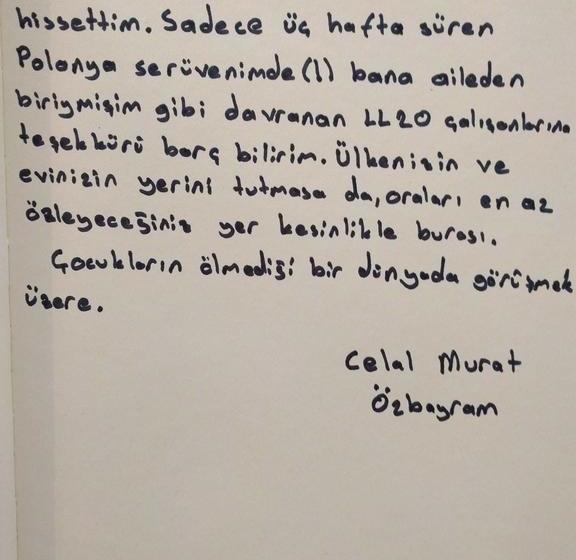 hissettim. Sadece üç hafta süren
Polonya serüvenimde(!) bana aileden
biriymişim gibi davranan LL20 çalışanlarına
teşekkürü borç bilirim. Ülkenizin ve
evinizin yerini tutmasa da, oraları en az
özleyeceğiniz yer kesinlikle burası.
Çocukların ölmediği bir dünyada görüşmek
üzere.
Celal Murat
Özbayram